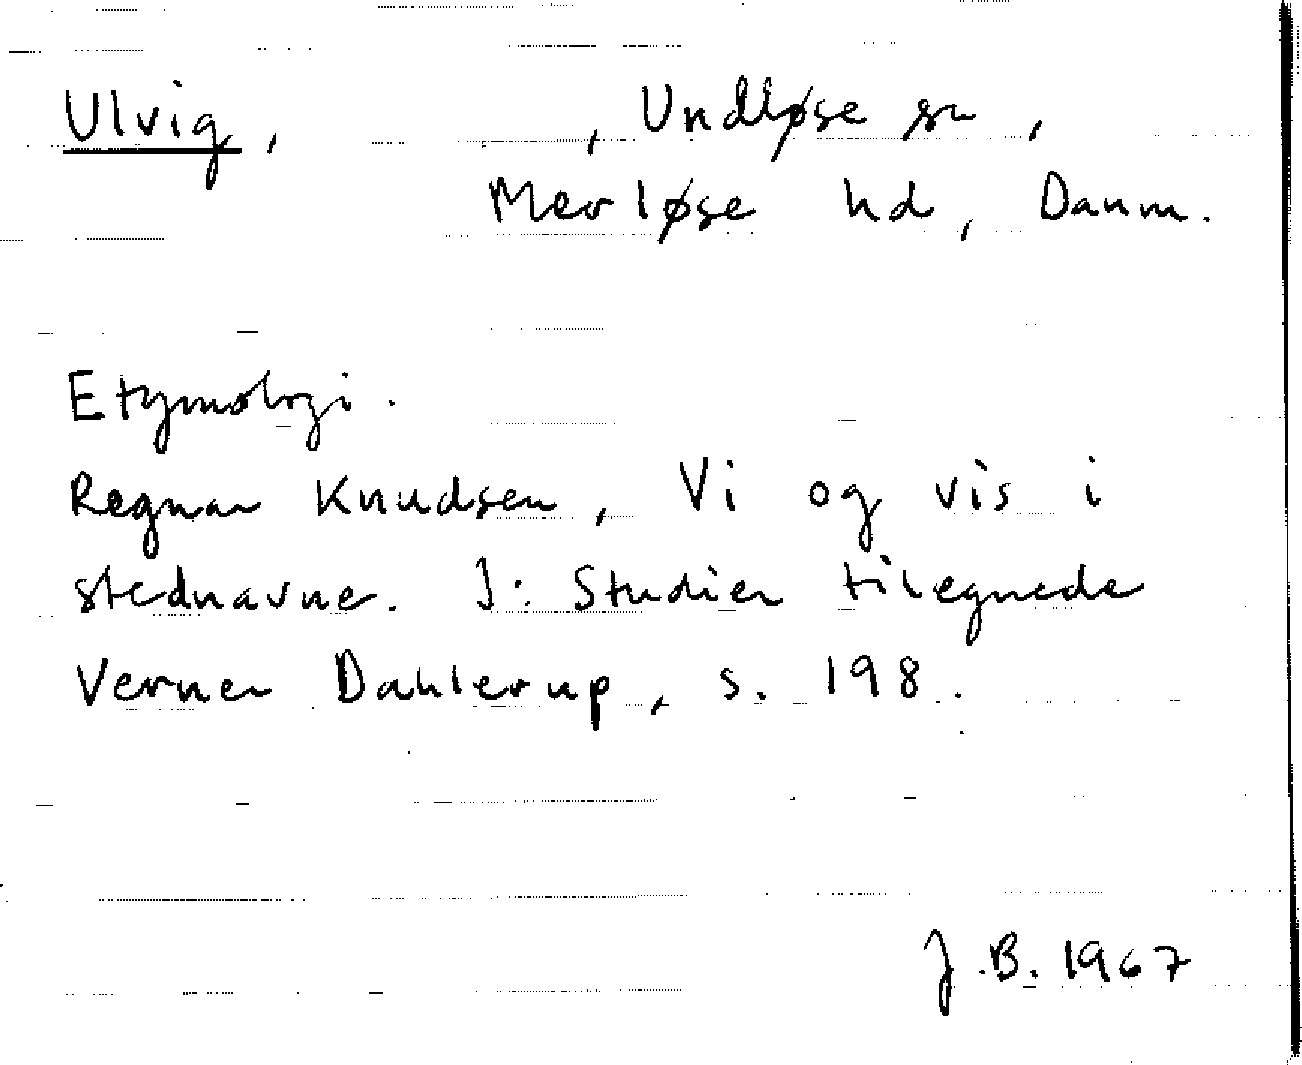 Ulvig, , Undløse sn,
Merløse hd, Danm.
Etymologi.
Regnar Knudsen, Vi og vis i
stednavne. I: Studier tilegnede
Verner Dahlerup, s. 198.
J.B. 1967